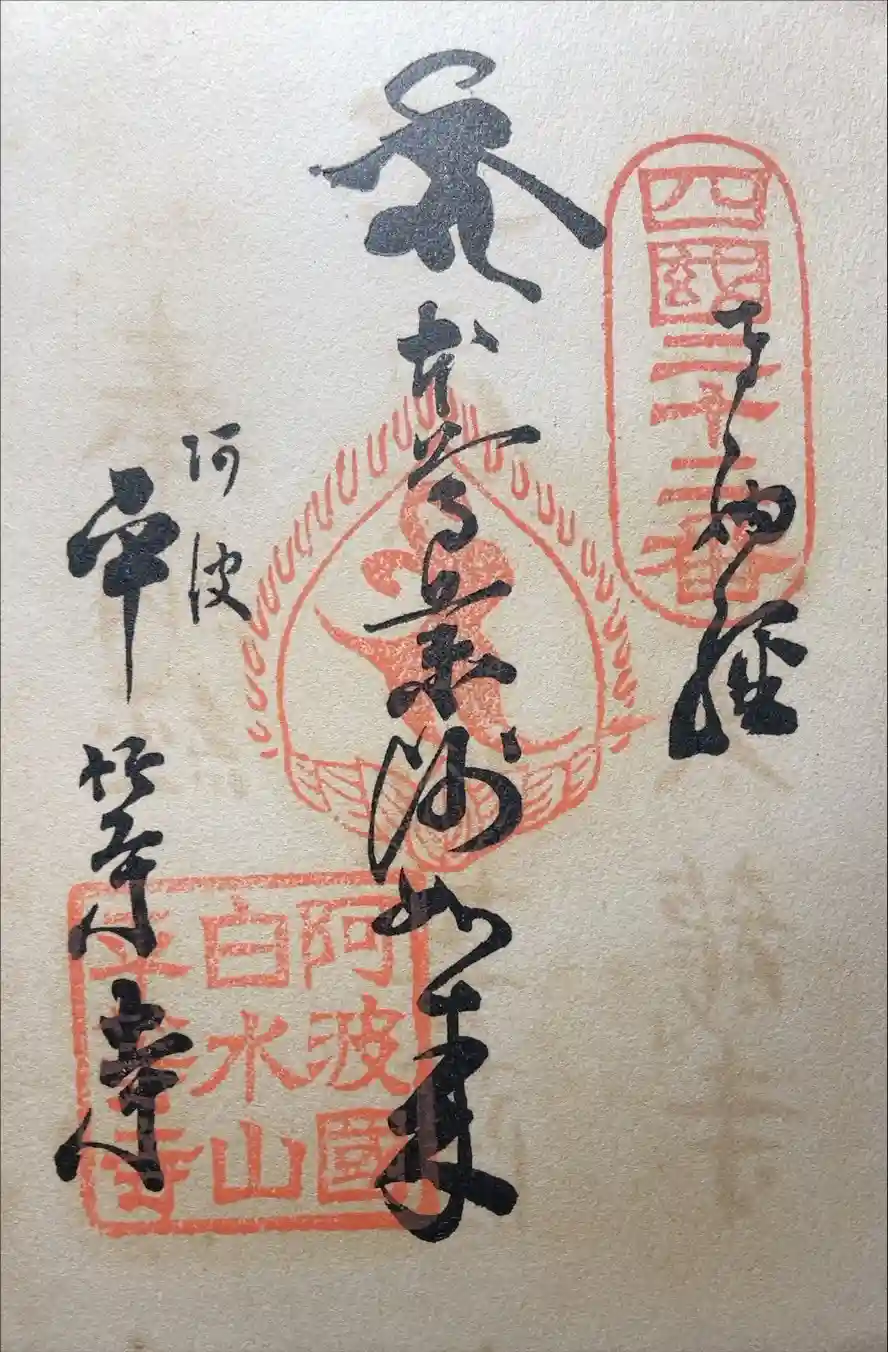 四國二十二番
奉納經
本尊薬師如来
阿波
平等寺
阿波國
白水山
平等寺